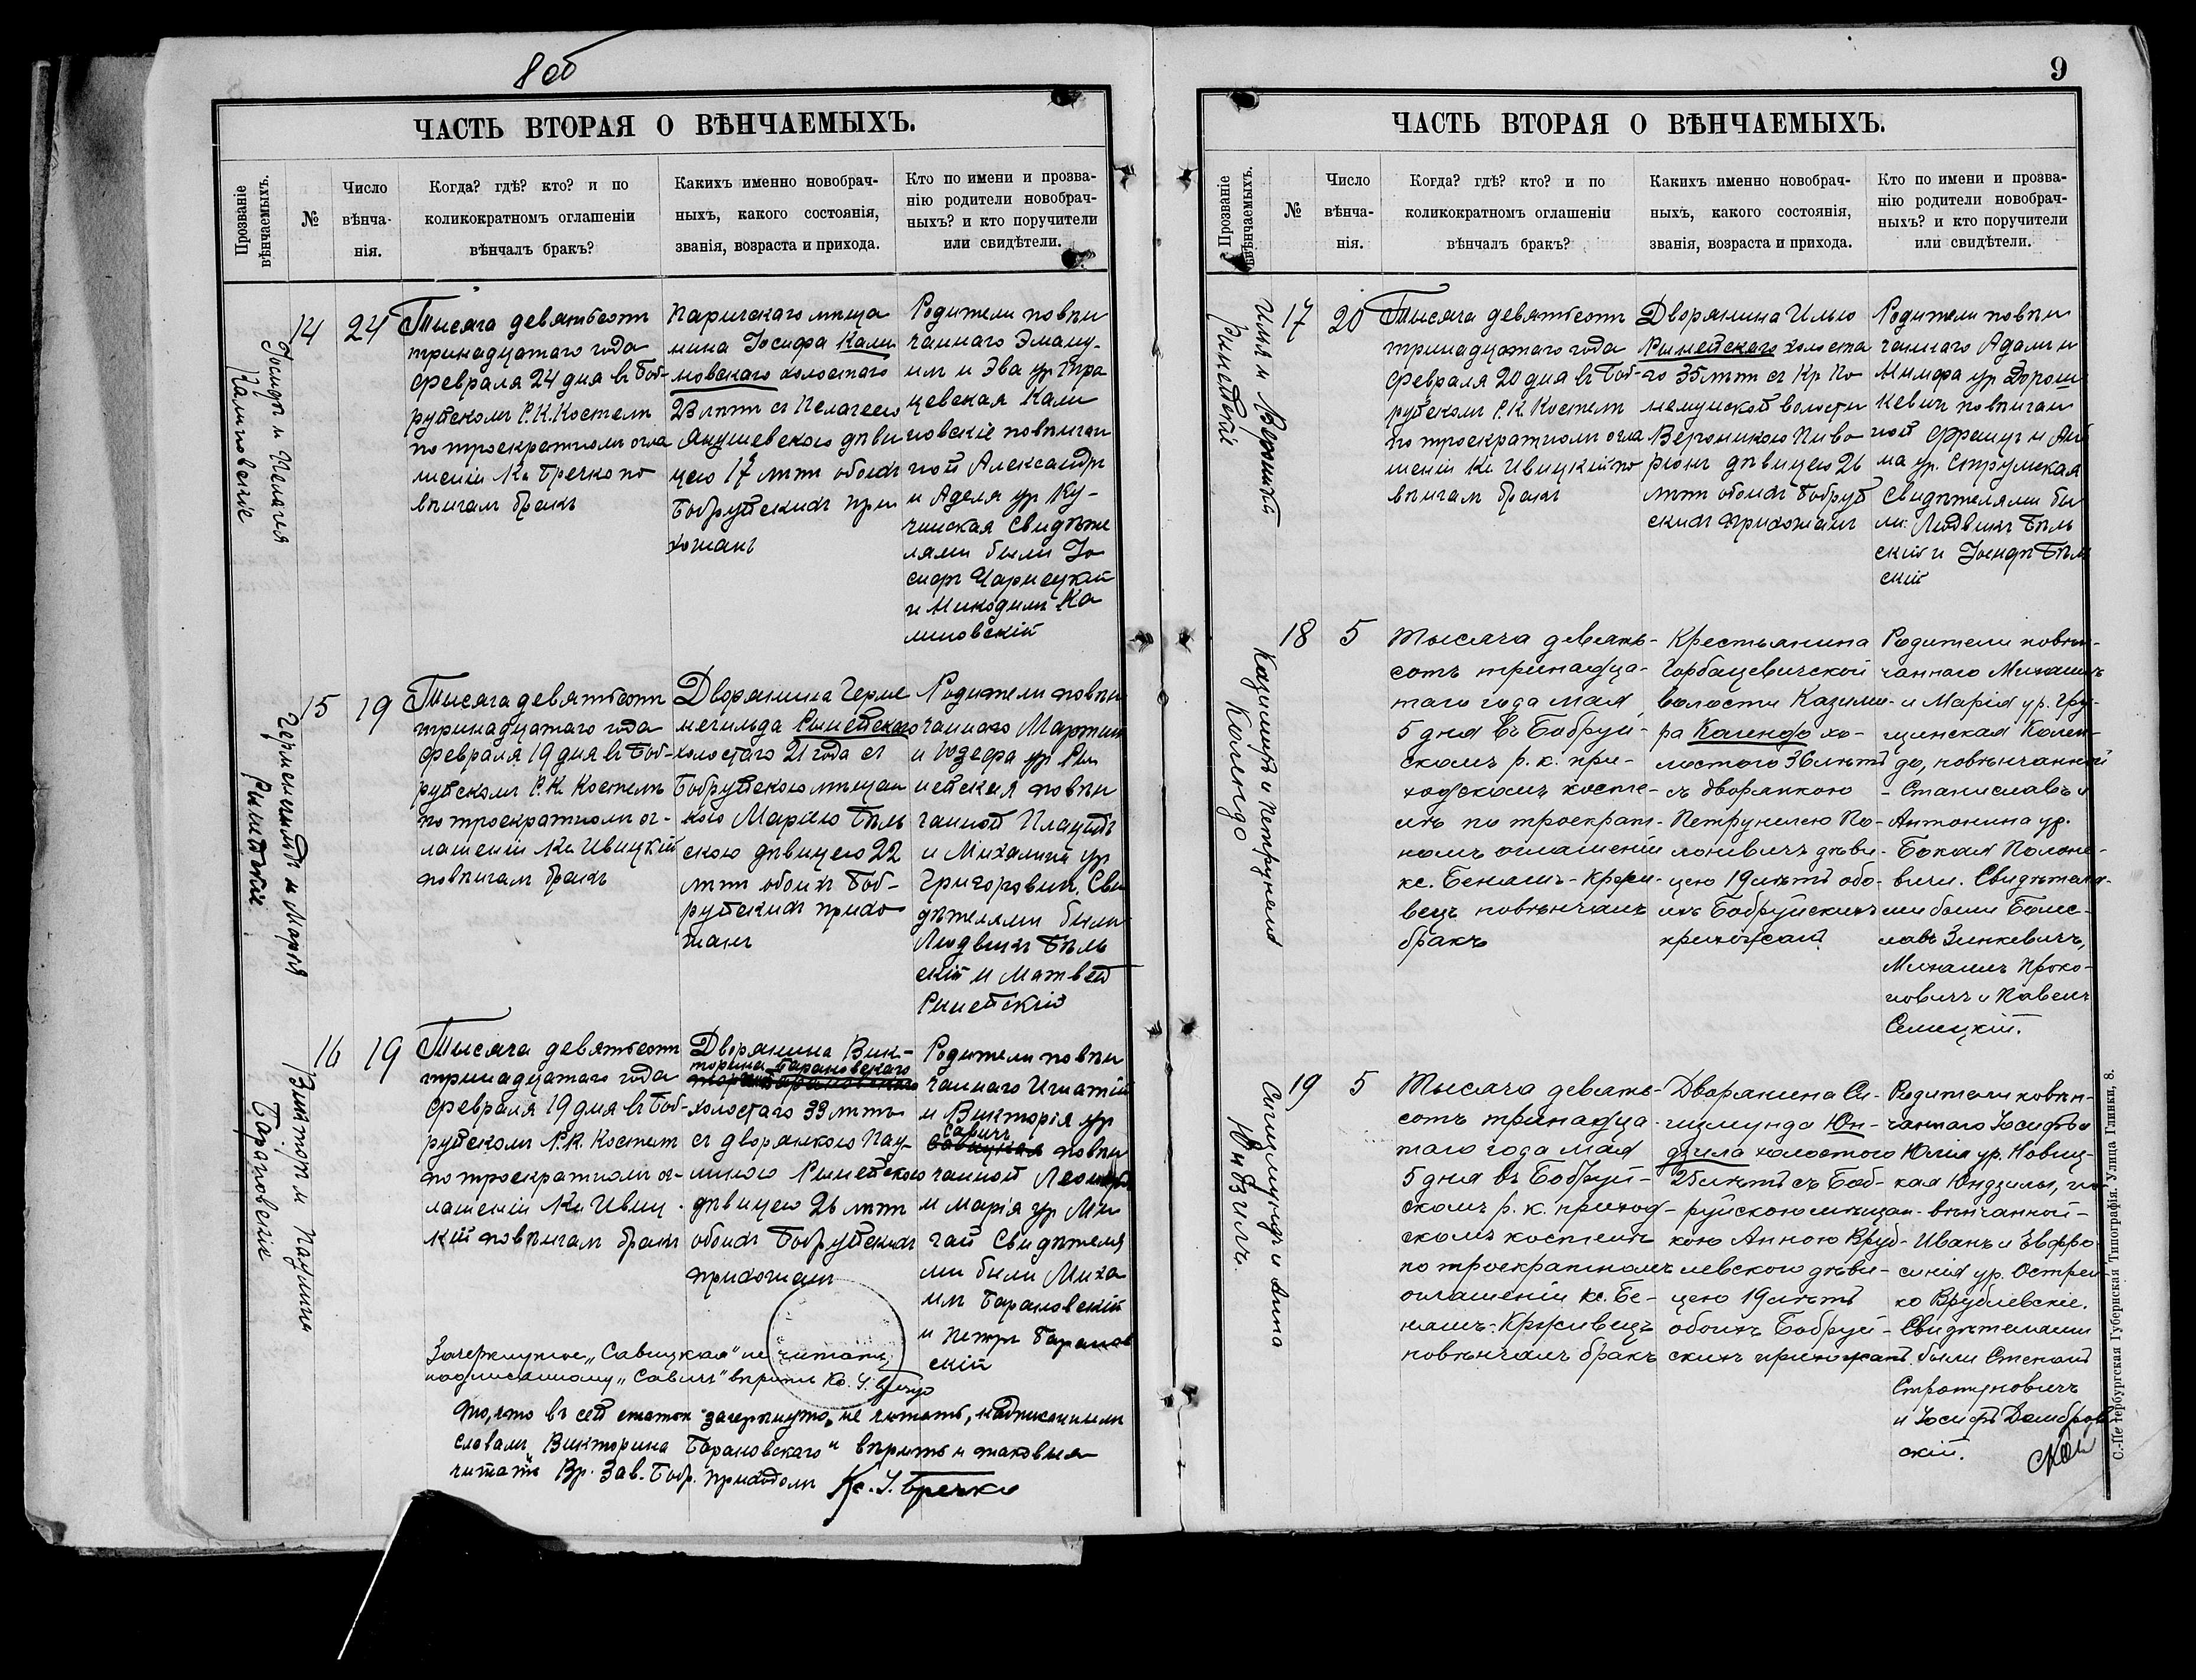 8 об
ЧАСТЬ ВТОРАЯ О ВѢНЧАЕМЫХЪ.
Прозваніе вѣнчаемыхъ.
№
Число вѣнча-
нія.
Когда? гдѣ? кто? и по
коликократномъ оглашеніи
вѣнчалъ бракъ?
Какихъ именно новобрач-
ныхъ, какого состоянія,
званія, возраста и прихода.
Кто по имени и прозва-
нію родители новобрач-
ныхъ? и кто поручители
или свидѣтели.
Іосифъ и Пелагея
Калиновскіе
14
24
Тысяча девятьсотъ
тринадцатаго года
февраля 24 дня въ Боб-
руйскомъ Р. К. Костелѣ
по троекратномъ огла
шеніи Кс. Бречко по
вѣнчалъ бракъ
Паричскаго мѣща
нина Іосифа Кали
новскаго холостаго
23 лѣтъ съ Пелагеею
Янушевскою дѣви
цею 17 лѣтъ обоихъ
Бобруйскихъ при
хожанъ
Родители повѣн
чаннаго Эману-
илъ и Эва ур
цевская Кали
новскіе повѣнчан
ной Александръ
и Аделя ур Ку-
чинская Свидѣте
лями были Іо
сифъ Чарнецкій
и Никодимъ Ка
линовскій
Герменигильдъ и Марія
Рынейскіе
15
19
Тысяча девятьсотъ
тринадцатаго года
февраля 19 дня въ Боб-
руйскомъ Р. К. Костелѣ
по троекратномъ ог-
лашеніи Кс. Ивицкій
повѣнчалъ бракъ
Дворянина Герме
негильда Рынейскаго
холостаго 21 года съ
Бобруйскою мѣщан
кою Маріею Бѣль
скою дѣвицею 22
лѣтъ обоихъ Боб-
руйскихъ прихо
жанъ
Родители повѣн
чаннаго Мартинъ
и Юзефа ур Ры
нейская повѣн
чанной Плацидъ
и Михалина ур
Григоровичъ. Сви
дѣтелями были
Людвикъ Бѣль
скій и Матвей
Рынейскій
Викторъ и Паулина
Барановскіе
16
19
Тысяча девятьсотъ
тринадцатаго года
февраля 19 дня въ Боб-
руйскомъ Р. К. Костелѣ
по троекратномъ ог-
лашеніи Кс. Ивиц-
кій повѣнчалъ бракъ
Дворянина Вик-
торина Барановскаго
холостаго 33 лѣтъ
съ дворянкою Пау-
линою Рынейскою
дѣвицею 26 лѣтъ
обоихъ Бобруйскихъ
прихожанъ
Родители повѣн
чаннаго Игнатій
и Викторія ур
Савичъ
Савицкая повѣн
чанной Леонардъ
и Марія ур Ми
гай Свидѣтеля
ми были Миха
илъ Барановскій
и Петръ Баранов
скій
Зачеркнутое „Савицкая" не читать,
надписанному „Савичъ" вѣрить Кс. У. Бречко
то, что въ сей статьѣ зачеркнуто, не читать, надписаннымъ
словамъ „Викторина Барановскаго" вѣрить и таковыя
читать Вр. Зав. Бобр. приходомъ Кс. У. Бречко
9
ЧАСТЬ ВТОРАЯ О ВѢНЧАЕМЫХЪ.
Прозваніе вѣнчаемыхъ.
№
Число
вѣнча-
нія.
Когда? гдѣ? кто? и по
коликократномъ оглашеніи
вѣнчалъ бракъ?
Какихъ именно новобрач-
ныхъ, какого состоянія,
званія, возраста и прихода.
Кто по имени и прозва-
нію родители новобрач-
ныхъ? и кто поручители
или свидѣтели.
Илья и Вероника
Рынейскіе
17
20
Тысяча девятьсотъ
тринадцатаго года
февраля 20 дня въ Боб-
руйскомъ Р. К. Костелѣ
по троекратномъ огла
шеніи Кс. Ивицкій по
вѣнчалъ бракъ
Дворянина Илью
Рынейскаго холоста
го 35 лѣтъ съ Кр. По
волости
Вероникою Пиво
дѣвицею 26
лѣтъ обоихъ Бобруй
скихъ прихожанъ
Родители повѣн
чаннаго Адамъ и
Нимфа ур Дорош
кевичъ повѣнчан
ной Францъ и Ан
на ур. Струмская
Свидѣтелями бы
ли: Людвикъ Бѣль
скій и Іосифъ Бѣль
скій
Казиміръ и Петрунеля
Колендо
18
5
Тысяча девять-
сотъ тринадца-
таго года мая
5 дня въ Бобруй-
скомъ р. к. при-
ходскомъ косте-
лѣ по троекрат-
номъ оглашеніи
кс. Бенашъ-Кржи-
вецъ повѣнчалъ
бракъ
Крестьянина
Горбацевичской
волости Казими-
ра Колендо хо-
лостого 36 лѣтъ
съ дворянкою
Петрунелею По-
лоневичъ дѣви-
цею 19 лѣтъ обо-
ихъ Бобруйскихъ
прихожанъ.
Родители повѣн-
чаннаго Михаилъ
и Марія ур. Гру-
щинская Колен-
до, повѣнчанной
- Станиславъ и
Антонина ур.
Бокая Полоне-
вичи. Свидѣтеля-
ми были Болес-
лавъ Зинкевичъ,
Михаилъ Проко-
повичъ и Павелъ
Семецкій.
Сигизмундъ и Анна
Юндзилъ.
19
5
Тысяча девять-
сотъ тринадца-
таго года мая
5 дня въ Бобруй-
скомъ р. к. приход-
скомъ костелѣ
по троекратномъ
оглашеніи кс. Бе-
нашъ-Крживецъ
повѣнчалъ бракъ
Дворянина Си-
гизмунда Юн-
дзила холостого
25 лѣтъ съ Боб-
руйскою мѣщан-
кою Анною Вруб-
левскою дѣви-
цею 19 лѣтъ
обоихъ Бобруй-
скихъ прихожанъ.
Родители повѣн-
чаннаго Іосифъ и
Юлія ур. Новиц-
кая Юндзилы, по-
вѣнчанной -
Иванъ и Евфро-
синія ур. Острей-
ко Врублевскіе.
Свидѣтелями
были Степанъ
Стратуновичъ
и Іосифъ Домбров-
скій.
С.-Петербургская Губернская Типографія. Улица Глинки, 8.